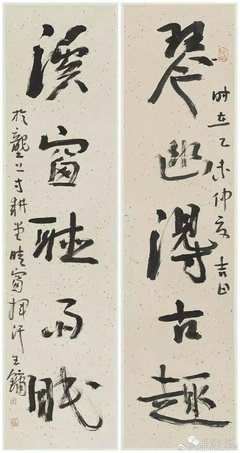 琴幽得古趣
時在乙未仲夏吉日
溪窗聽雨眠
於壟上寸耕堂晴窗揮汗王鏞